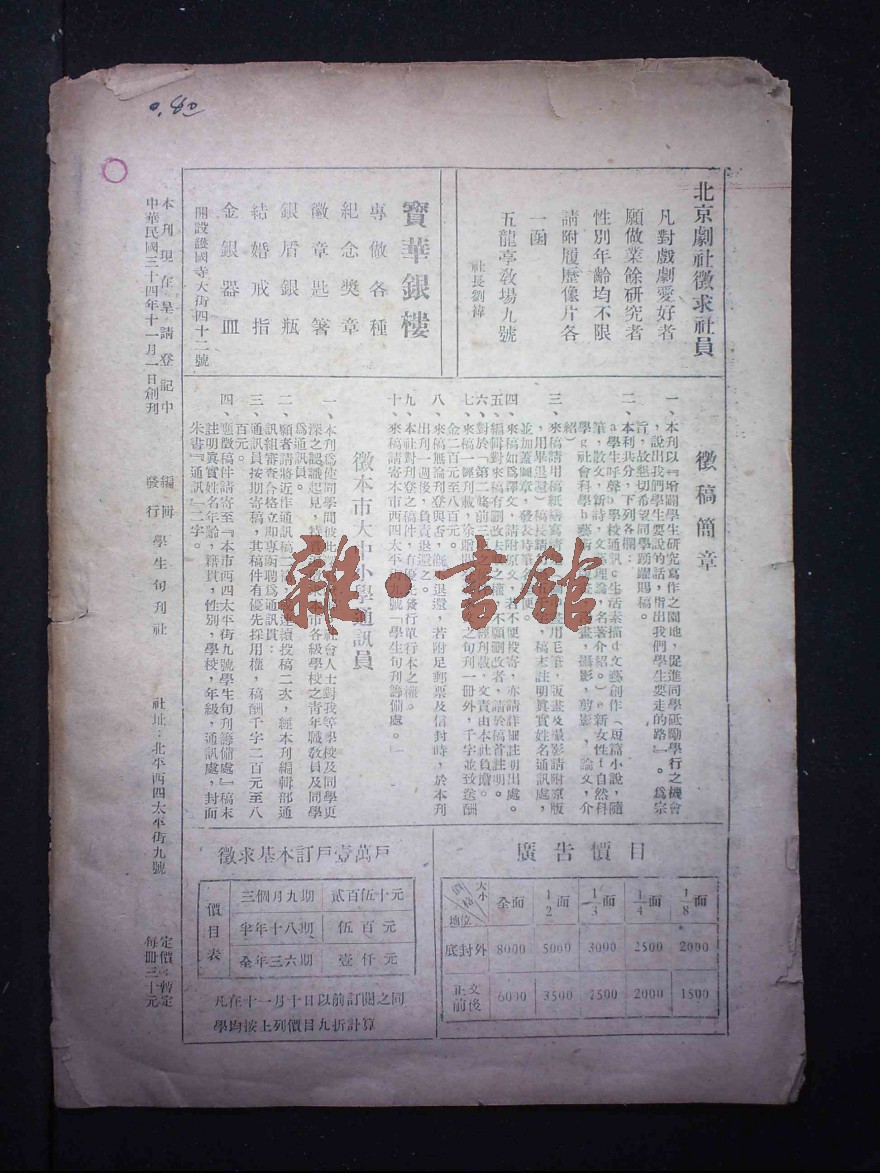 北京劇社徵求社員
凡對戲劇愛好者
願做業餘研究者
性別年齡均不限
請附履歷像片各
一函
五龍亭教場九號
社長劉禕
寶華銀樓
專做各種
紀念獎章
徽章匙箸
銀盾銀瓶
結婚戒指
金銀器皿
開設護國寺大街四十二號
徵稿簡章
一、本刊以『增闢學生研究寫作之園地，促進同學砥勵學行之機會
，說出我們學生要說的話，指出我們學生要走的路』。爲宗
旨，故懇切希望同學踴躍賜稿。
二、本刊共分，下列各欄：
a學生呼聲b學校通訊c生活素描d文藝創作（短篇小說，隨
筆，散文，新詩，文藝理論，名著介紹。）e新女性f自然科
學g社會科學h藝
畫，攝影，剪影，論文，介
紹）
三、來稿請用稿紙繕寫
用毛筆，版畫及攝影請附原版
，用畢退還）稿長
，稿末註明眞實姓名通訊處，
並加蓋圖章，發表時筆
便。
四、來稿如爲譯文，請附原文，若不便投寄，亦請詳細註明出處。
五、編輯對來稿有刪改
之權，不願刪改者，請於稿首註明。
六、對於「第二條前三
經刊載，文責由本社負擔。
七、來稿一經刊載，除贈
之旬刊一冊外，千字並致送酬
金二百元至八百元。
八、來稿無論刊登與否，概
退還，若附足郵票及信封時，於本刊
出刊一週後，負責退還之。
九、本社對刊登之稿件，有優先發行單行本之權。
十、來稿請寄本市西四太平街九號「學生旬刊籌備處。」
徵本市大中小學通訊員
一、本刊爲使同學間彼此
社會人士對我等學校及同學更
深之認識起見，特
市各級學校之青年職教員及同學
爲通訊員。
二、願者請將近作通訊稿一
或連續投稿二次，經本刊編輯部通
訊組審查合格立即專函聘爲通訊員：
三、通訊員按期寄稿，其稿件有優先採用權，稿酬千字二百元至八
百元。
四、應徵稿件請寄至『本市西四太平街九號學生旬刊籌備處』稿末
註明眞實姓名年齡，籍貫，性別，學校，年級，通訊處，封面
朱書『通訊』二字。
廣告價目
大小 價格 地位 全面 1/2面 1/3面 1/4面 1/8面
底封外 8000 5000 3000 2500 2000
正文前後 6000 3500 2500 2000 1500
徵求基本訂戶壹萬戶
價目表
三個月九期 貳百伍十元
半年十八期 伍百元
全年三六期 壹仟元
凡在十一月十日以前訂閱之同
學均按上列價目九折計算
本刊現在呈請登記中
中華民國三十四年十一月一日創刊
編輯
發行
學生旬刊社
社址：北平西四太平街九號
定價：暫定
每冊三十元
雜·書館